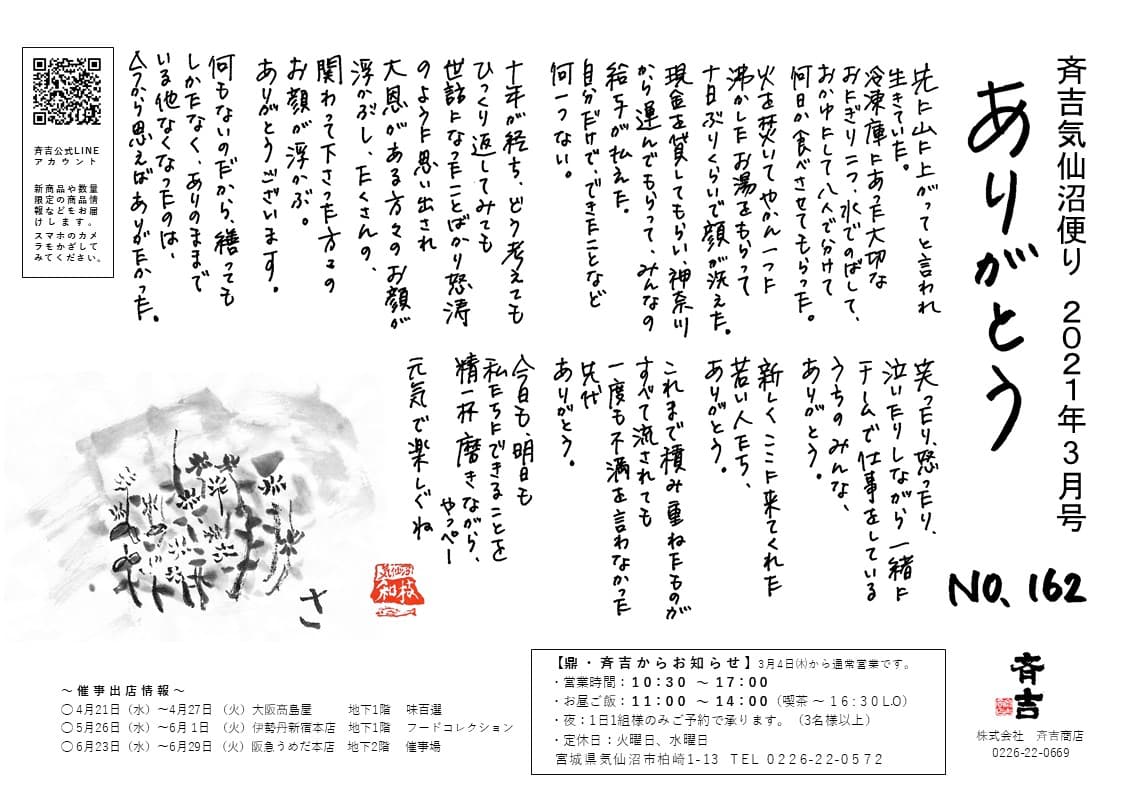 斉吉気仙沼便り 2021年3月号
ありがとう
NO. 162
先に山に上がってと言われ
生きていた。
冷凍庫にあった大切な
おにぎり二つ、水でのばして、
おかゆにして八人で分けて
何日か食べさせてもらった。
火を焚いてやかん一つに
沸かしたお湯をもらって
十日ぶりくらいで顔が洗えた。
現金を貸してもらい、神奈川
から運んでもらって、みんなの
給与が払えた。
自分だけで、できたことなど
何一つない。
十年が経ち、どう考えても
ひっくり返してみても
世話になったことばかり怒涛
のように思い出され
大恩がある方々のお顔が
浮かぶし、たくさんの、
関わって下さった方々の
お顔が浮かぶ。
ありがとうございます。
何もないのだから、繕っても
しかたなく、ありのままで
いる他なくなったのは、
今から思えばありがたかった。
笑ったり、怒ったり、
泣いたりしながら一緒に
チームで仕事をしている
うちのみんな、
ありがとう。
新しくここに来てくれた
若い人たち、
ありがとう。
これまで積み重ねたものが
すべて流されても
一度も不満を言わなかった
先代
ありがとう。
今日も、明日も
私たちにできることを
精一杯磨きながら、
やっぺー
元気で楽しぐね
さ
気仙沼
和枝
斉吉公式LINE
アカウント
新商品や数量
限定の商品情
報などもお届
けします。
スマホのカメ
ラをかざして
みてください。
～催事出店情報～
〇4月21日（水）～4月27日（火）大阪高島屋 地下1階 味百選
〇5月26日（水）～6月1日（火）伊勢丹新宿本店 地下1階 フードコレクション
〇6月23日（水）～6月29日（火）阪急うめだ本店 地下2階 催事場
【鼎・斉吉からお知らせ】3月4日㈭から通常営業です。
・営業時間：10:30 ～17:00
・お昼ご飯：11:00 ～14:00（喫茶～16:30L.O）
・夜：1日1組様のみご予約で承ります。（3名様以上）
・定休日：火曜日、水曜日
宮城県気仙沼市柏崎1-13 TEL 0226-22-0572
斉吉
株式会社 斉吉商店
0226-22-0669